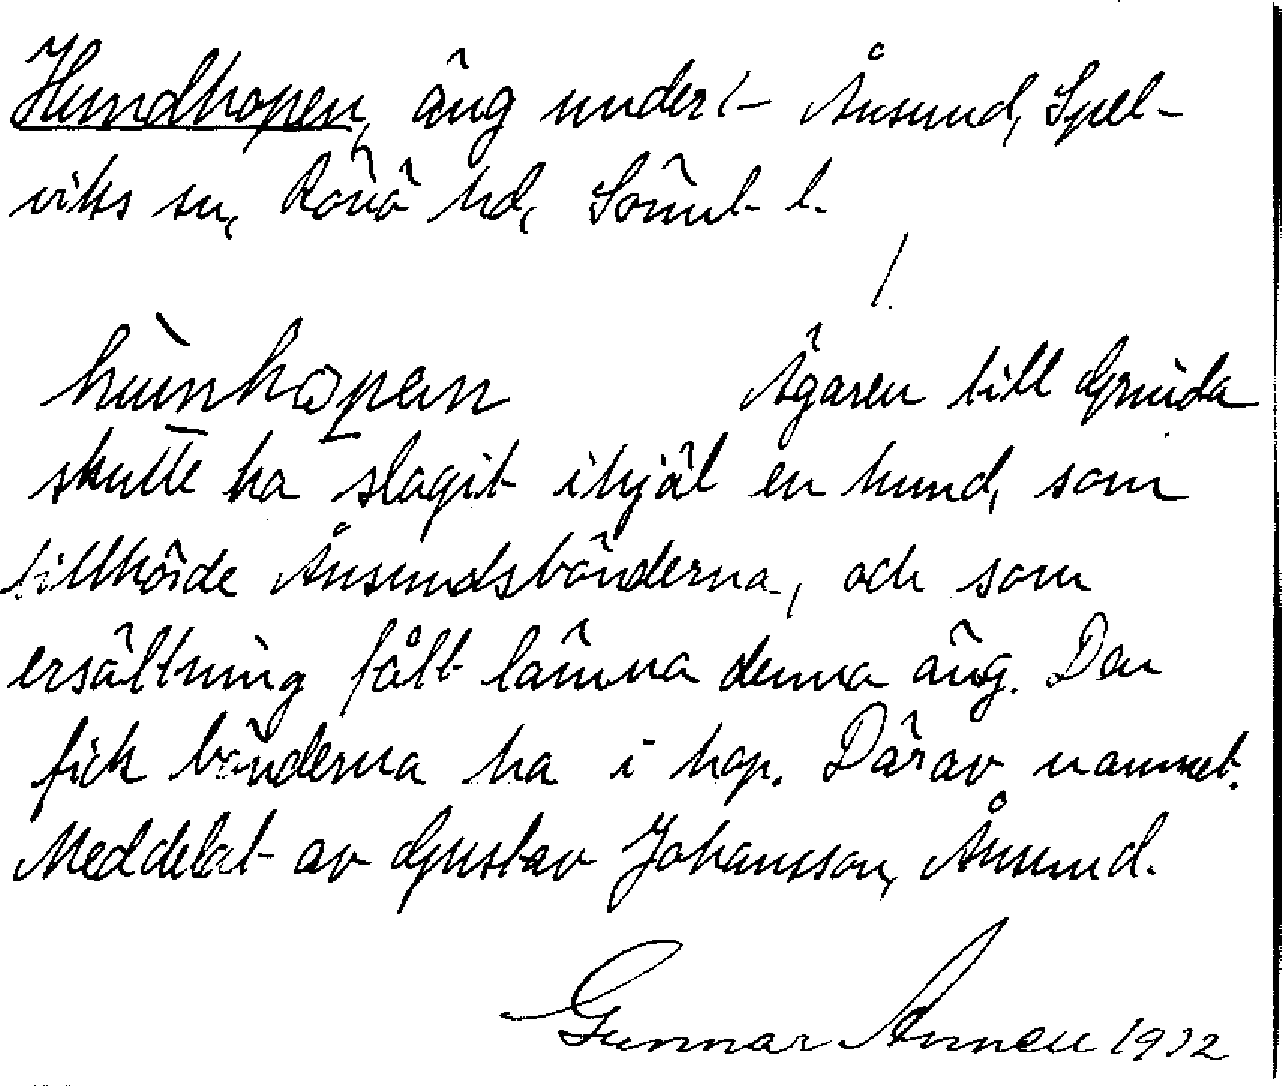 Hundhopen, äng under t Ånsund, Spel-
viks sn, Rönö hd, Söml. l.
hùnhopen Ägaren till Gruida
skulle ha slagit ihjäl en hund, som
tillhörde Ånsundsbönderna, och som
ersättning fått lämna denna äng. Den
fick bönderna ha i hop. Därav namnet.
Meddelat av Gustav Johansson, Ånsund.
Gunnar 1932